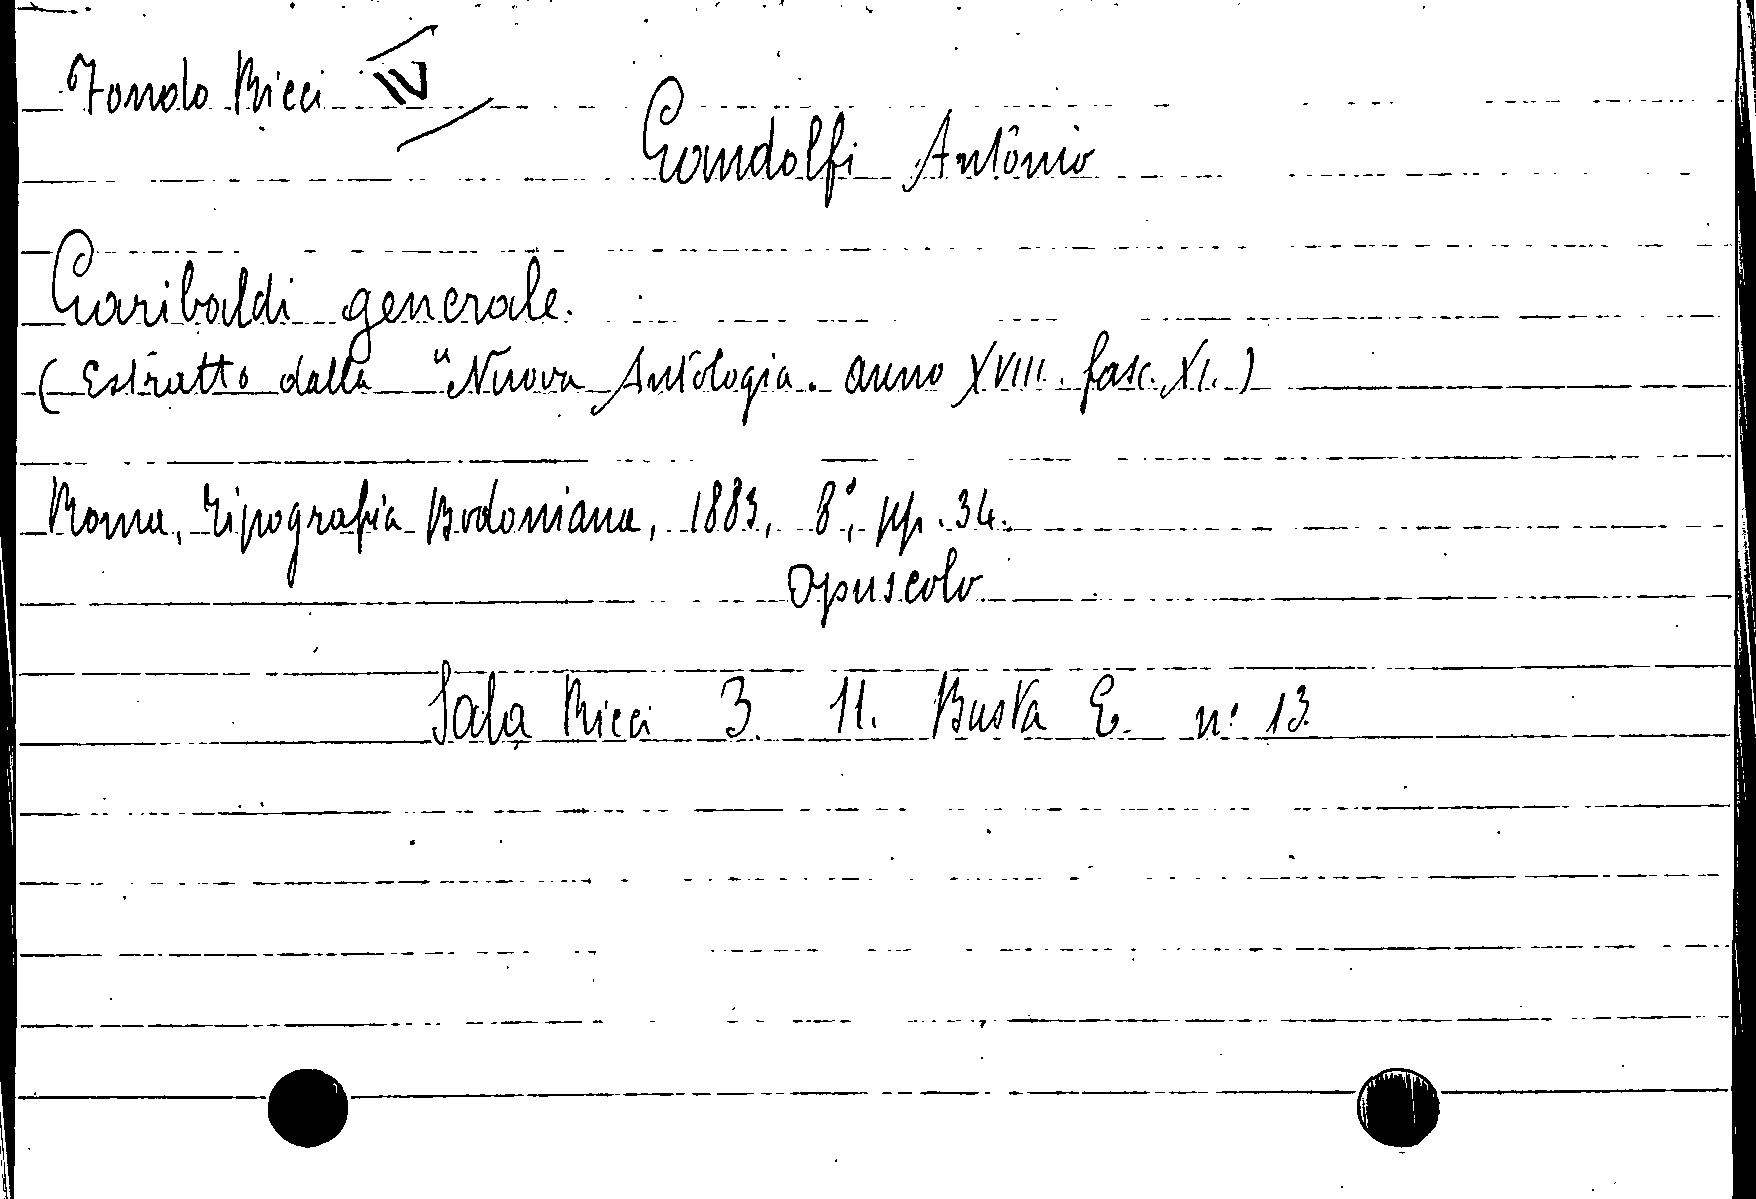 Fondo Ricci IV
Gandolfi Antonio
Garibaldi generale.
(Estratto dalla "Nuova Antologia. anno XVIII. fasc. XI.)
Roma, Tipografia Bodoniana, 1883, 8°, pp. 34.
Opuscolo
Sala Ricci 3. 11. Busta E. n° 13.